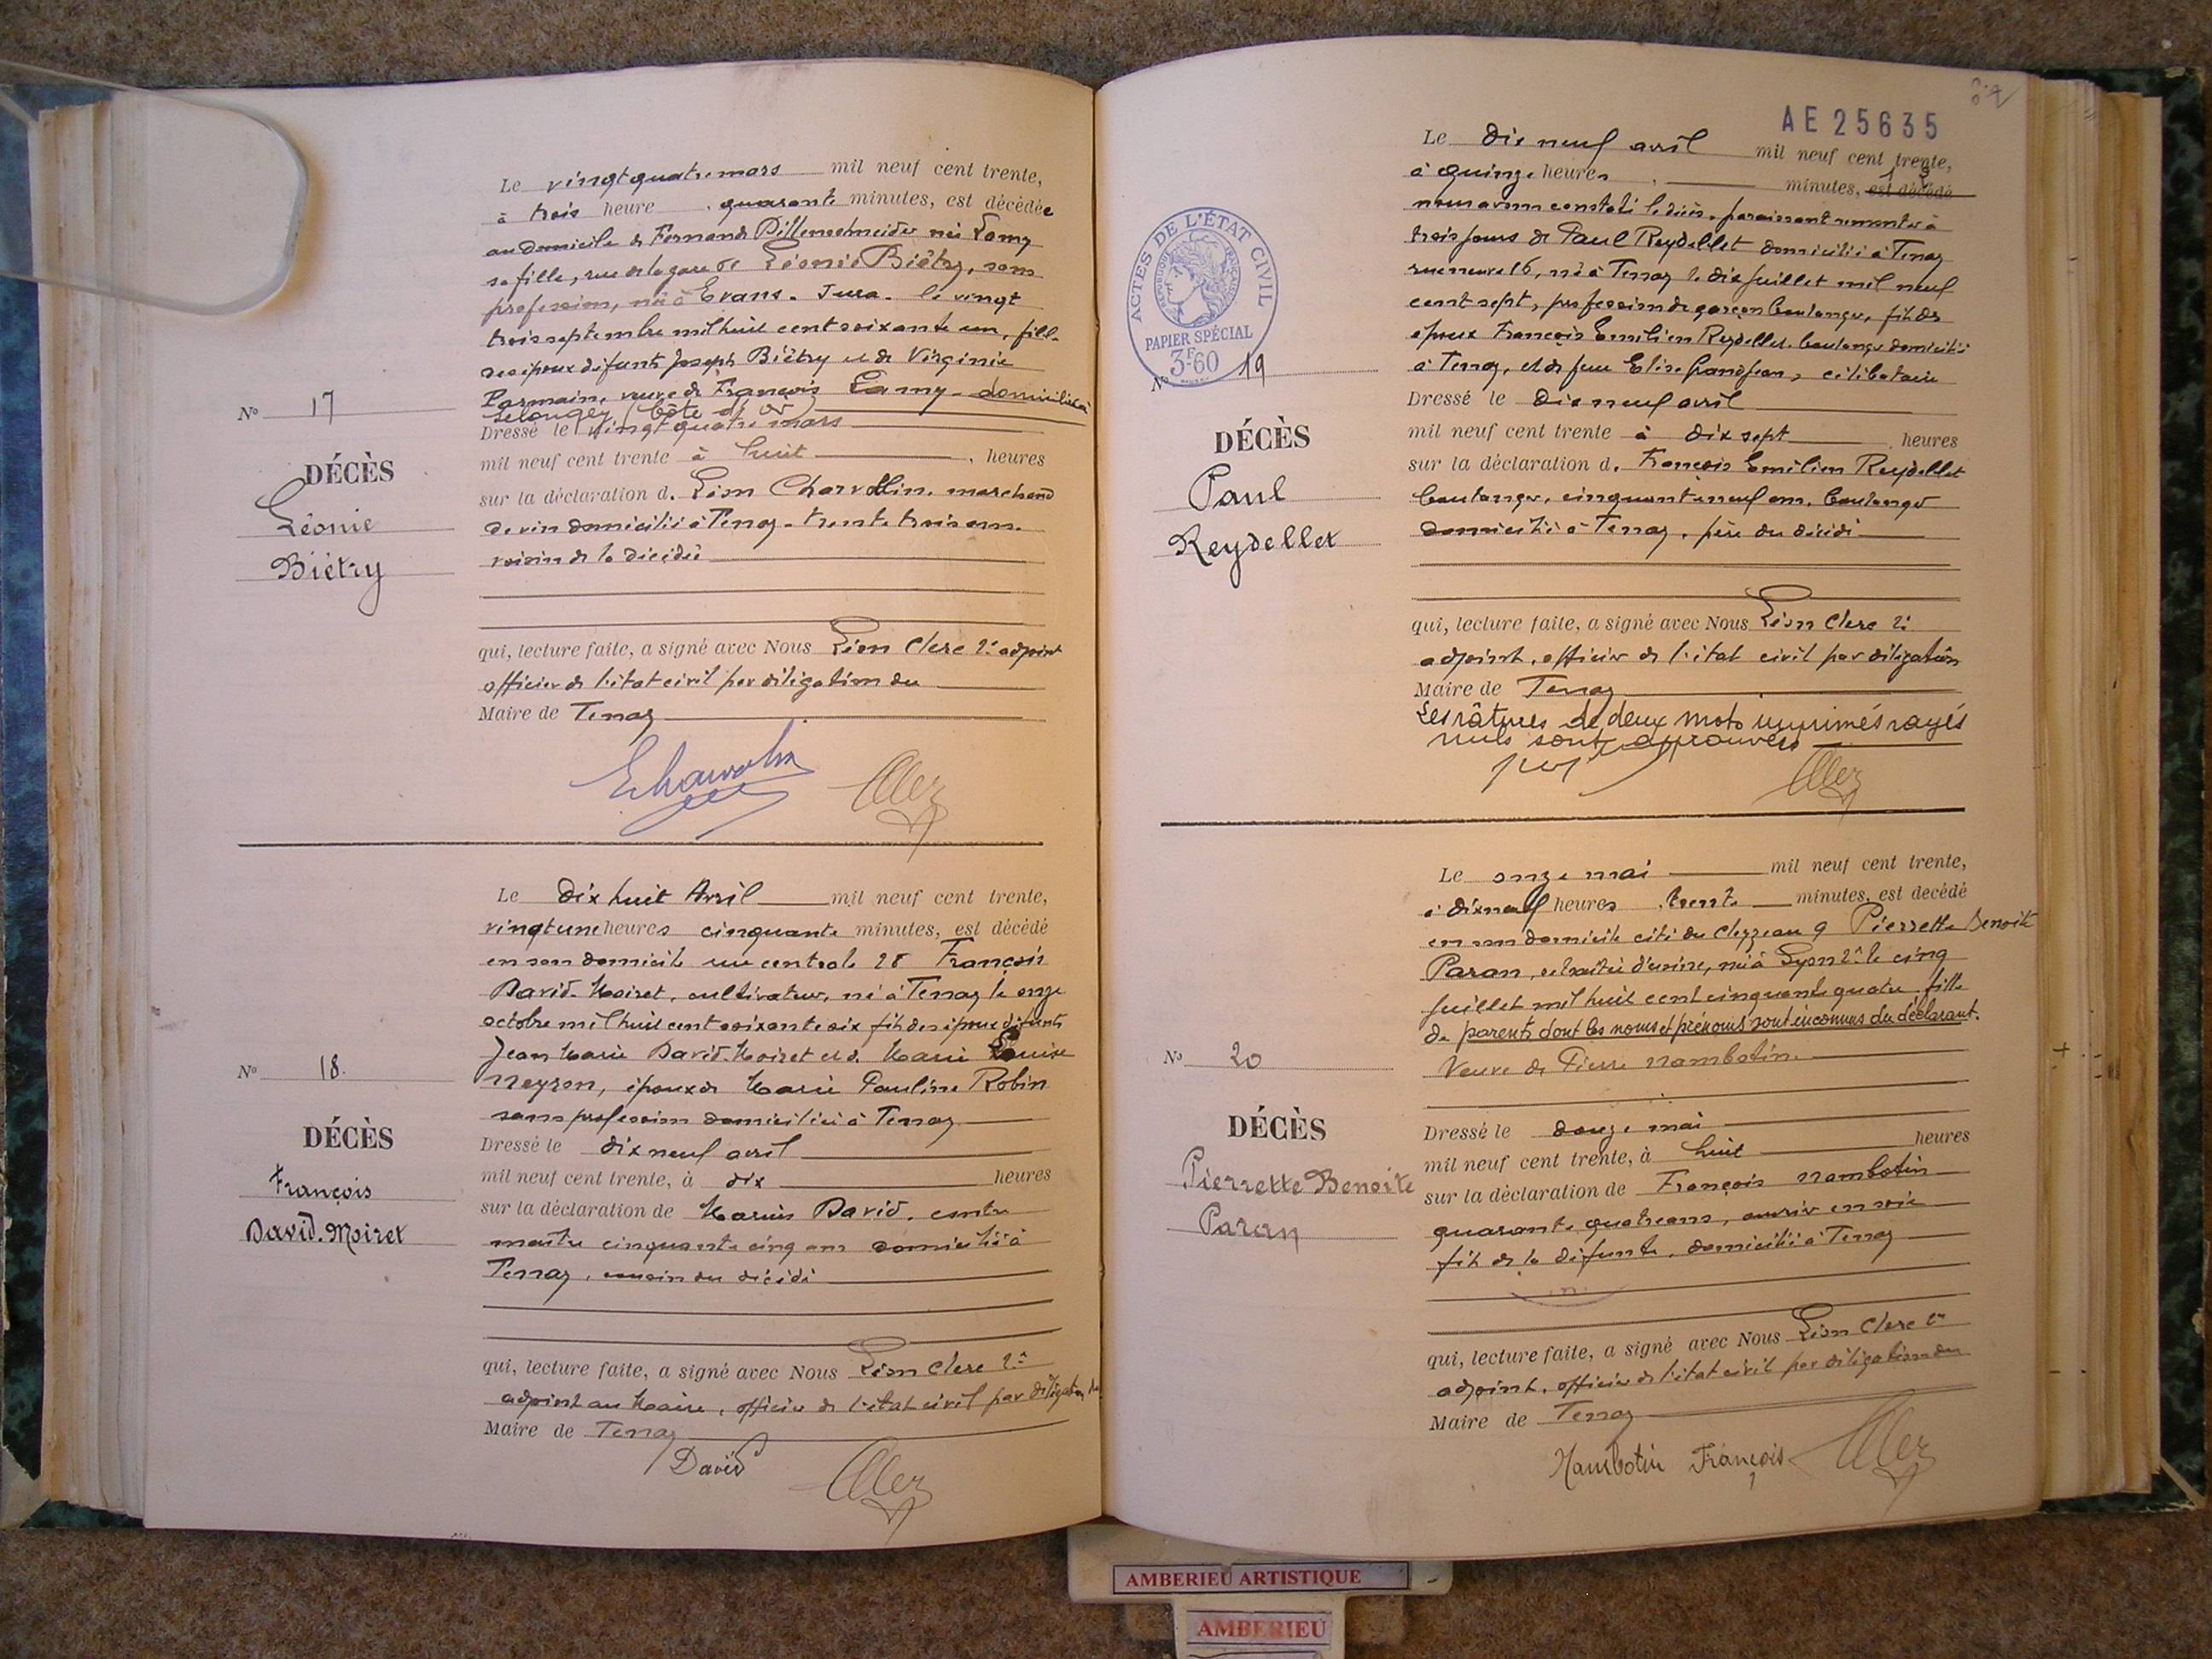 Le vingt quatre mars mil neuf cent trente,
à trois heure quarante minutes, est décédée
au domicile de Fernande née Lamy
sa fille, rue de la gare 8 Léonie Biétry, sans
profession, née à Evans. Jura. le vingt
trois septembre mil huit cent soixante un, fille
des époux défunts Joseph Biétry et de Virginie
Parmain, veuve de François Lamy domiciliée à
Selongey (Côte d'or)
Nº 17
Dressé le vingt quatre mars
mil neuf cent trente à huit heures
DÉCÈS
Léonie
Biétry
sur la déclaration d. Léon Charvolin, marchand
de vin domicilié à Tenay, trente trois ans.
voisin de la décédée
qui, lecture faite, a signé avec Nous Léon Clerc 2e adjoint
officier de l'état civil par délégation du
Maire de Tenay
Charvolin
Clerc
Le dix huit Avril mil neuf cent trente,
vingt une heures cinquante minutes, est décédé
en son domicile rue centrale 28 François
David-Moiret, cultivateur, né à Tenay le onze
octobre mil huit cent soixante six fils des époux défunts
Jean Marie David-Moiret et d. Marie Louise
Neyron, époux de Marie Pauline Robin
sans profession domiciliée à Tenay
Nº 18.
DÉCÈS
François
David-Moiret
Dressé le dix neuf avril
mil neuf cent trente, à dix heures
sur la déclaration de Marius David, contre
maître cinquante cinq ans domicilié à
Tenay, cousin du décédé
qui, lecture faite, a signé avec Nous Léon Clerc 2e
adjoint au Maire, officier de l'état civil par délégation du
Maire de Tenay
David
Clerc
AE 25635
Le dix neuf avril mil neuf cent trente,
à quinze heures minutes, est décédé
nous avons constaté le décès, paraissant remonter à
trois jours de Paul Reydellet domicilié à Tenay
rue neuve 16, né à Tenay le dix juillet mil neuf
cent sept, profession de garçon boulanger, fils des
époux François Emilien Reydellet, boulanger domicilié
à Tenay, et de feue Elise Grandjean, célibataire
ACTES DE L'ÉTAT CIVIL
RÉPUBLIQUE FRANÇAISE
PAPIER SPÉCIAL
3F60
Nº 19
DÉCÈS
Paul
Reydellet
Dressé le dix neuf avril
mil neuf cent trente à dix sept heures
sur la déclaration d. François Emilien Reydellet
boulanger, cinquante neuf ans, boulanger
domicilié à Tenay, père du décédé
qui, lecture faite, a signé avec Nous Léon Clerc 2e
adjoint, officier de l'état civil par délégation
Maire de Tenay
Les râtures de deux mots imprimés rayés
nuls sont approuvés
Clerc
Le onze mai mil neuf cent trente,
à dix neuf heures trente minutes, est decédé
en son domicile cité du Clezeau 9 Pierrette Benoite
Paran, retraitée d'usine, née à Lyon 2e le cinq
juillet mil huit cent cinquante quatre fille
de parents dont les noms et prénoms sont inconnus du déclarant.
Veuve de Pierre Nambotin.
Nº 20
DÉCÈS
Pierrette Benoite
Paran
Dressé le douze mai
mil neuf cent trente, à huit heures
sur la déclaration de François Nambotin
quarante quatre ans, ouvrier en soie
fils de la défunte, domicilié à Tenay
qui, lecture faite, a signé avec Nous Léon Clerc 2e
adjoint, officier de l'état civil par délégation du
Maire de Tenay
Nambotin François
Clerc
AMBERIEU ARTISTIQUE
AMBERIEU